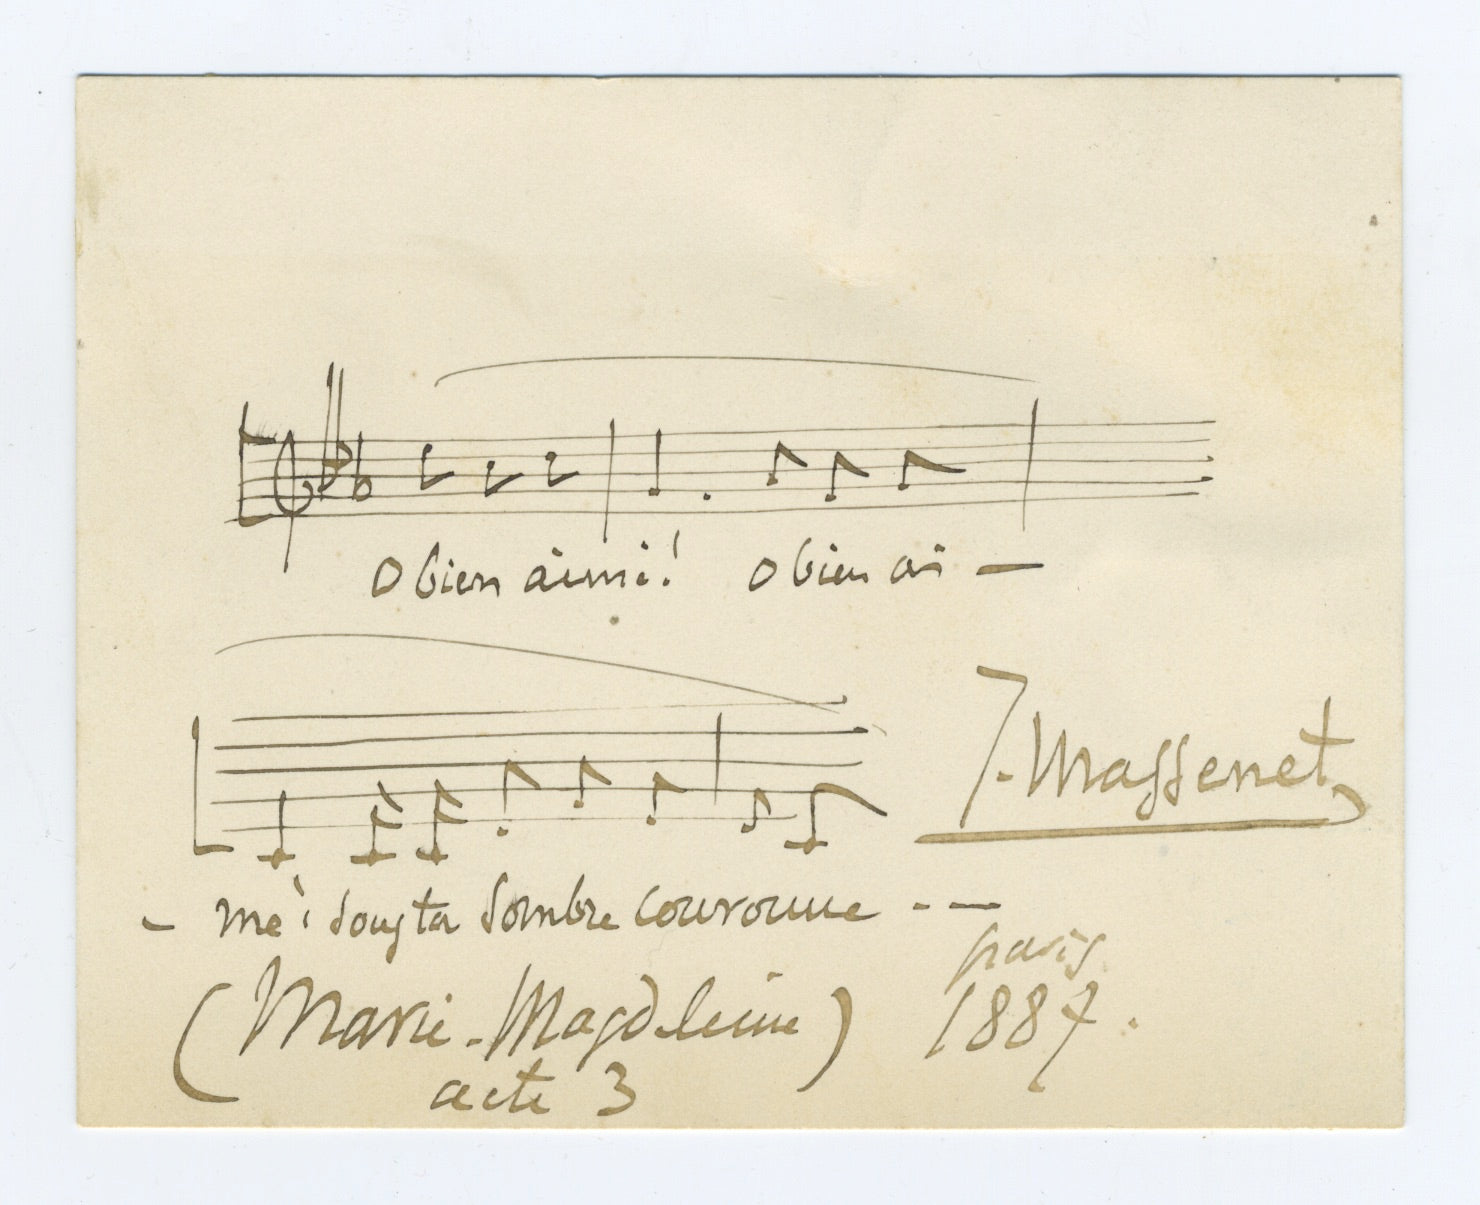 O bien aimé! O bien ai —
— mé! sous ta sombre couronne - —
J. Massenet
(Marie-Magdeleine)
acte 3
Paris
1887.